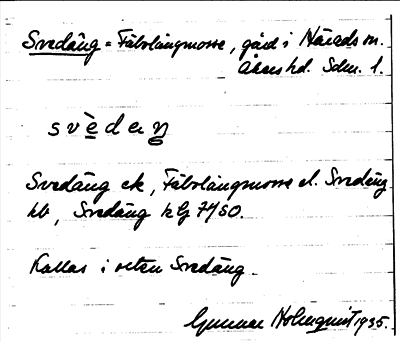 Svedäng = Fäbolängmosse, gård i Härads sn.
Åkers hd. Sdm. l.
svèdeŋ
Svedäng ek, Fäbolängmosse el. Svedäng
hb, Svedäng hG 7450.
Kallas i orten Svedäng
Gunnar Holmquist 1935.